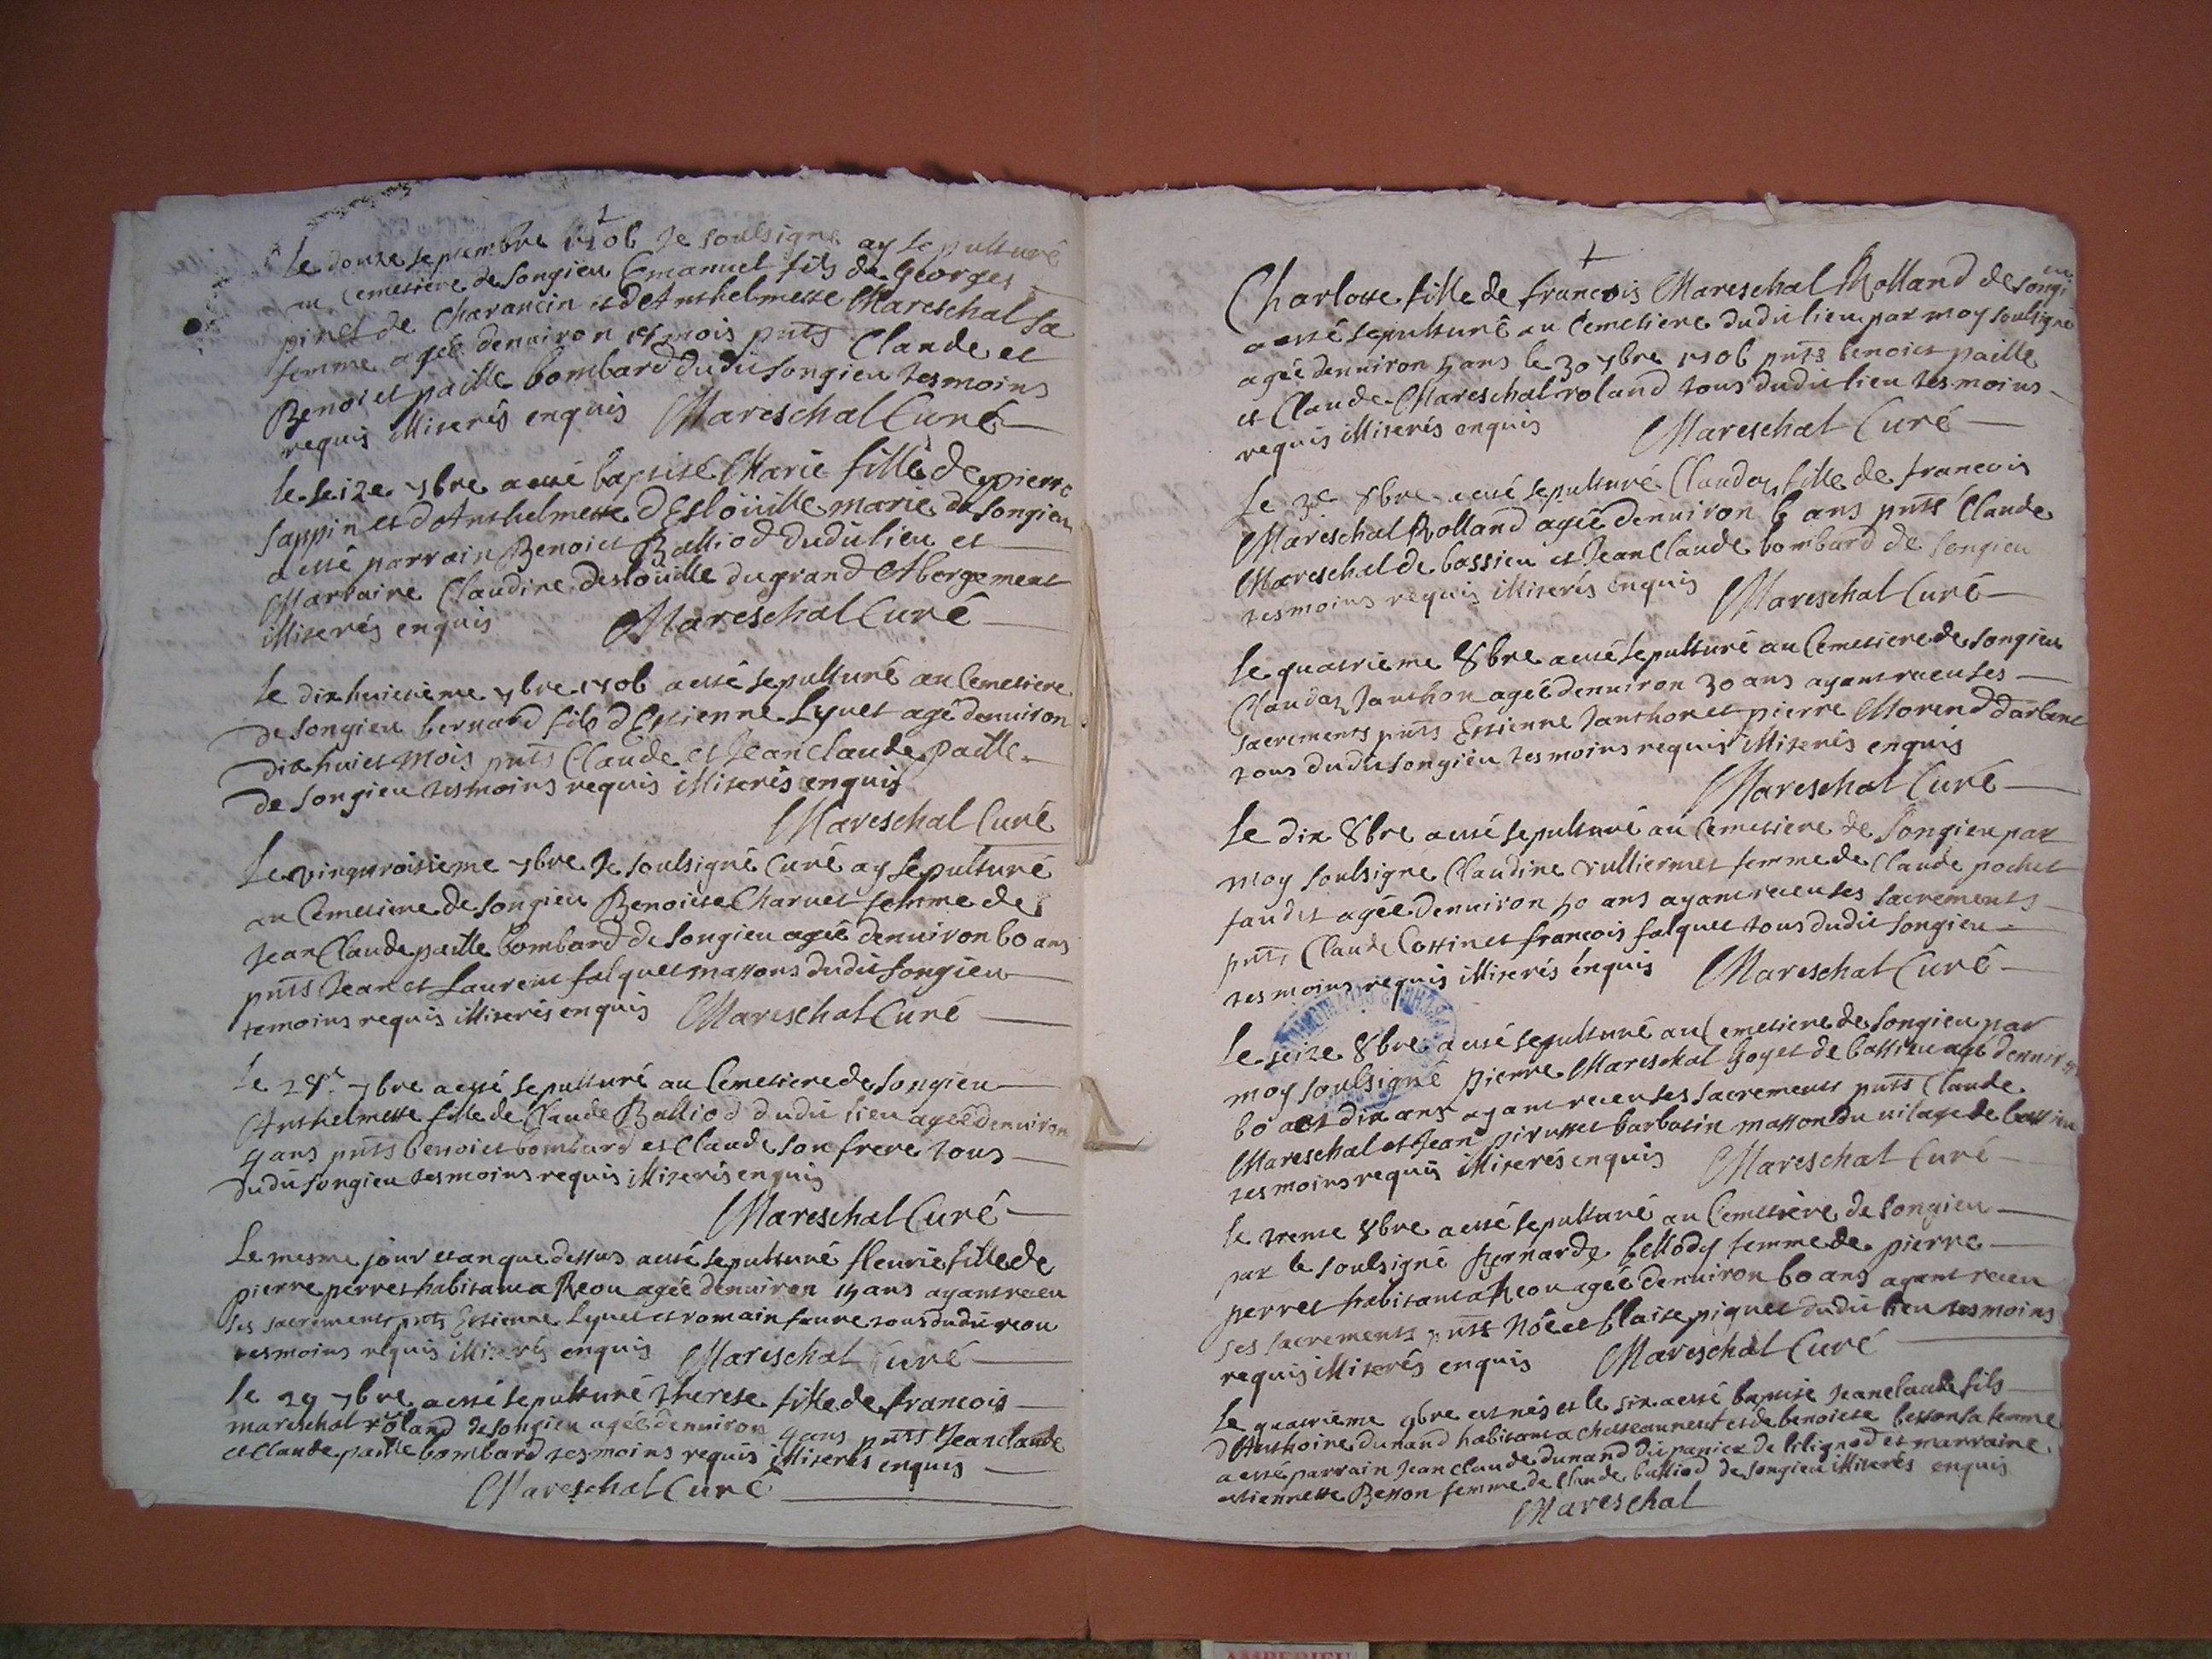 Le douze septembre 1706 Je soulsigne ay sepulturé
au Cemetiere de Songieu Emanuel fils de Georges
pinet de Charancin et d'Anthelmette Mareschal sa
femme agée denuiron 15 mois pnts Claude et
Benoict paille bombard dudit songieu tesmoins
requis illiterés enquis Mareschal Curé
Le seize 7bre a esté baptisé Marie fille de pierre
sappin et d'Anthelmette d'Eslöuille mariés de Songieu
a esté parrain Benoict Balliod dudit lieu et
Marraine Claudine deslöuille du grand Abergement
illiterés enquis Mareschal Curé
Le dixhuictieme 7bre 1706 a esté sepulturé au Cemetiere
de songieu bernard fils d'Estienne Lyuet agé denuiron
dix huict mois pnts Claude et Jean Claude paille
de songieu tesmoins requis illiterés enquis
Mareschal Curé
Le vingttroisieme 7bre Je soulsigné Curé ay sepulturé
au Cemetiere de songieu Benoicte Charuet femme de
Jean Claude paille bombard de songieu agée denuiron 60 ans
pnts Jean et Laurent falquet massons dudit songieu
temoins requis illiterés enquis Mareschal Curé
Le 28e 7bre a esté sepulturé au Cemetiere de songieu
Anthelmette fille de Claude Balliod dudit lieu agée denuiron
4 ans pnts benoict bombard et Claude son frere tous
dudit songieu tesmoins requis illiterés enquis
Mareschal Curé
Le mesme jour et an que dessus a esté sepulturé fleurie fille de
pierre perret habitant a Reou agée denuiron 14 ans ayant receu
ses sacrements pnts Estienne Lyuet et romain faure tous dudit reou
tesmoins requis illiterés enquis Mareschal Curé
Le 29 7bre a esté sepulturé therese fille de francois
mareschal roland de songieu agée denuiron 4 ans pnts Jean claude
et Claude paille bombard tesmoins requis illiterés enquis
Mareschal Curé
Charlotte fille de francois Mareschal Rolland de songieu
a esté sepulturé au Cemetiere dudit lieu par moy soulsigné
agée denuiron 5 ans le 30 7bre 1706 pnts benoict paille
et Claude Mareschal roland tous dudit lieu tesmoins
requis illiterés enquis Mareschal Curé
Le 3e 8bre a esté sepulturé Clauda fille de francois
Mareschal Rolland agée denuiron 6 ans pnts Claude
Mareschal de bassieu et Jean Claude bombard de songieu
tesmoins requis illiterés enquis Mareschal Curé
Le quatrieme 8bre a esté sepulturé au Cemetiere de songieu
Clauda Janthon agée denuiron 30 ans ayant receu ses
sacrements pnts Estienne Janthon et pierre Morend
tous dudit songieu tesmoins requis illiterés enquis
Mareschal Curé
Le dix 8bre a esté sepulturé au Cemetiere de songieu par
moy soulsigne Claudine vulliermet femme de Claude pochet
faudet agée denuiron 50 ans ayant receu ses sacrements
pnts Claude Cottin et francois falquet tous dudit songieu
tesmoins requis illiterés enquis Mareschal Curé
Le seize 8bre a esté sepulturé au Cemetiere de songieu par
moy soulsigné pierre Mareschal goyet de bassieu agé denuiron
60 et dix ans ayant receu ses sacrements pnts Claude
Mareschal et Jean pirusset barbarin masson du uilage de bassieu
tesmoins requis illiterés enquis Mareschal Curé
Le trente 8bre a esté sepulturé au Cemetiere de songieu
par le soulsigné bernarde femme de pierre
perret habitant a Reou agée denuiron 60 ans ayant receu
ses sacrements pnts Noé et blaise piquet dudit lieu tesmoins
requis illiterés enquis Mareschal Curé
Le quatrieme 9bre est nés et le six a esté baptisé Jean claude fils
d'Anthoine dunand habitant a chateauneuf et de benoicte besson sa femme
a esté parrain Jean claude dunand panier de lilignod et marraine
estiennette Besson femme de Claude balliod de songieu illiterés enquis
Mareschal